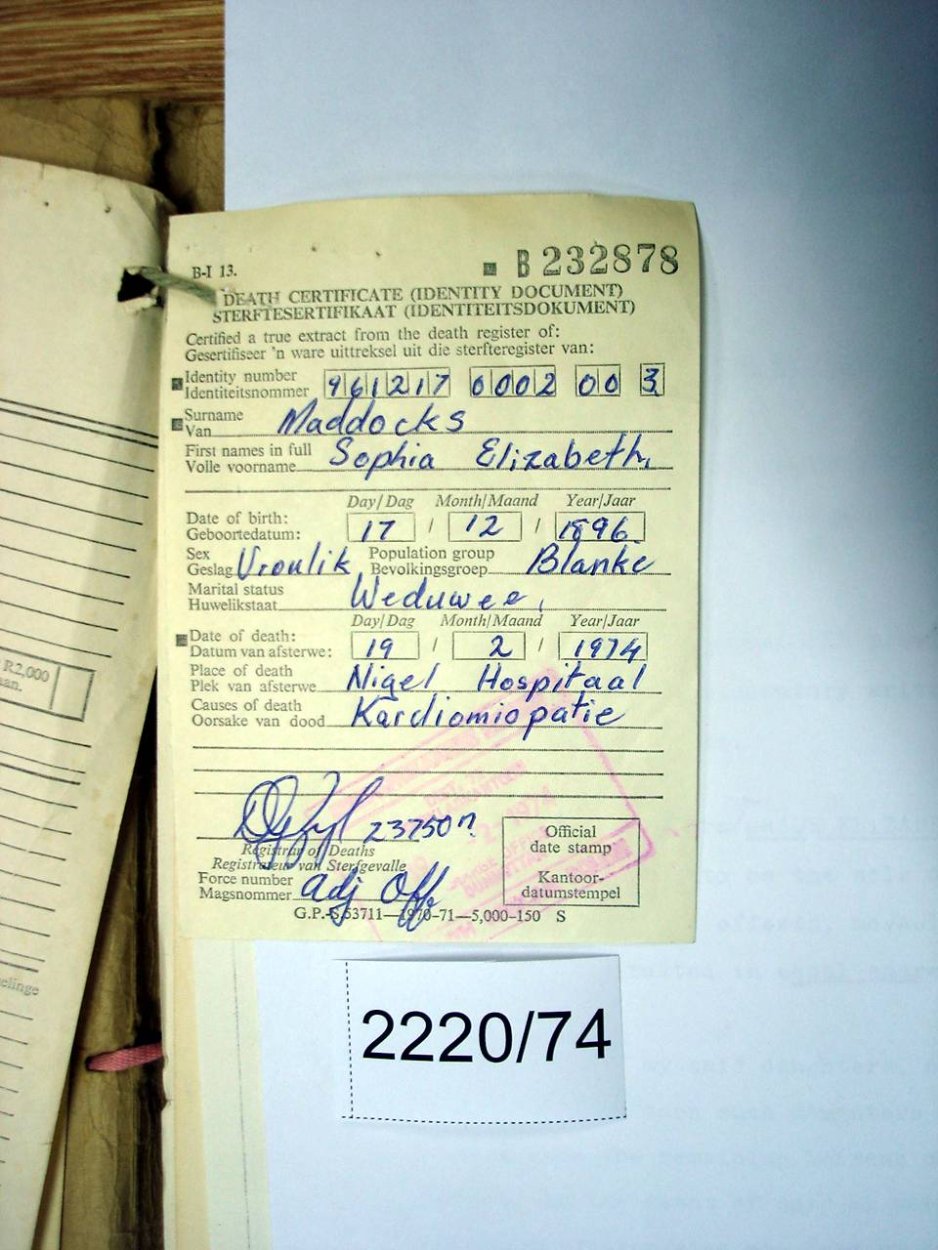 B-I 13. B 232878
DEATH CERTIFICATE (IDENTITY DOCUMENT)
STERFTESERTIFIKAAT (IDENTITEITSDOKUMENT)
Certified a true extract from the death register of:
Gesertifiseer 'n ware uittreksel uit die sterfteregister van:
Identity number
Identiteitsnommer 961217 0002 00 3
Surname
Van Maddocks
First names in full
Volle voorname Sophia Elizabeth
Day/Dag Month/Maand Year/Jaar
Date of birth:
Geboortedatum: 17 / 12 / 1896
Sex Population group
Geslag Vroulik Bevolkingsgroep Blanke
Marital status
Huwelikstaat Weduwee
Day/Dag Month/Maand Year/Jaar
Date of death:
Datum van afsterwe: 19 / 2 / 1974
Place of death
Plek van afsterwe Nigel Hospitaal
Causes of death
Oorsake van dood Kardiomiopatie
Registrar of Deaths
Registrateur van Sterfgevalle
Force number
Magsnommer Adj Off
Official
date stamp
Kantoor-
datumstempel
G.P.-S.53711—1970-71—5,000-150 S
2220/74
R2,000